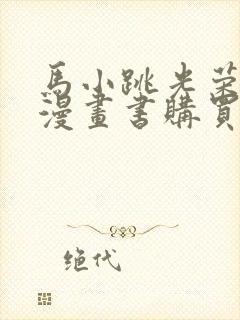 馬小跳光榮
漫畫書購買
绝代